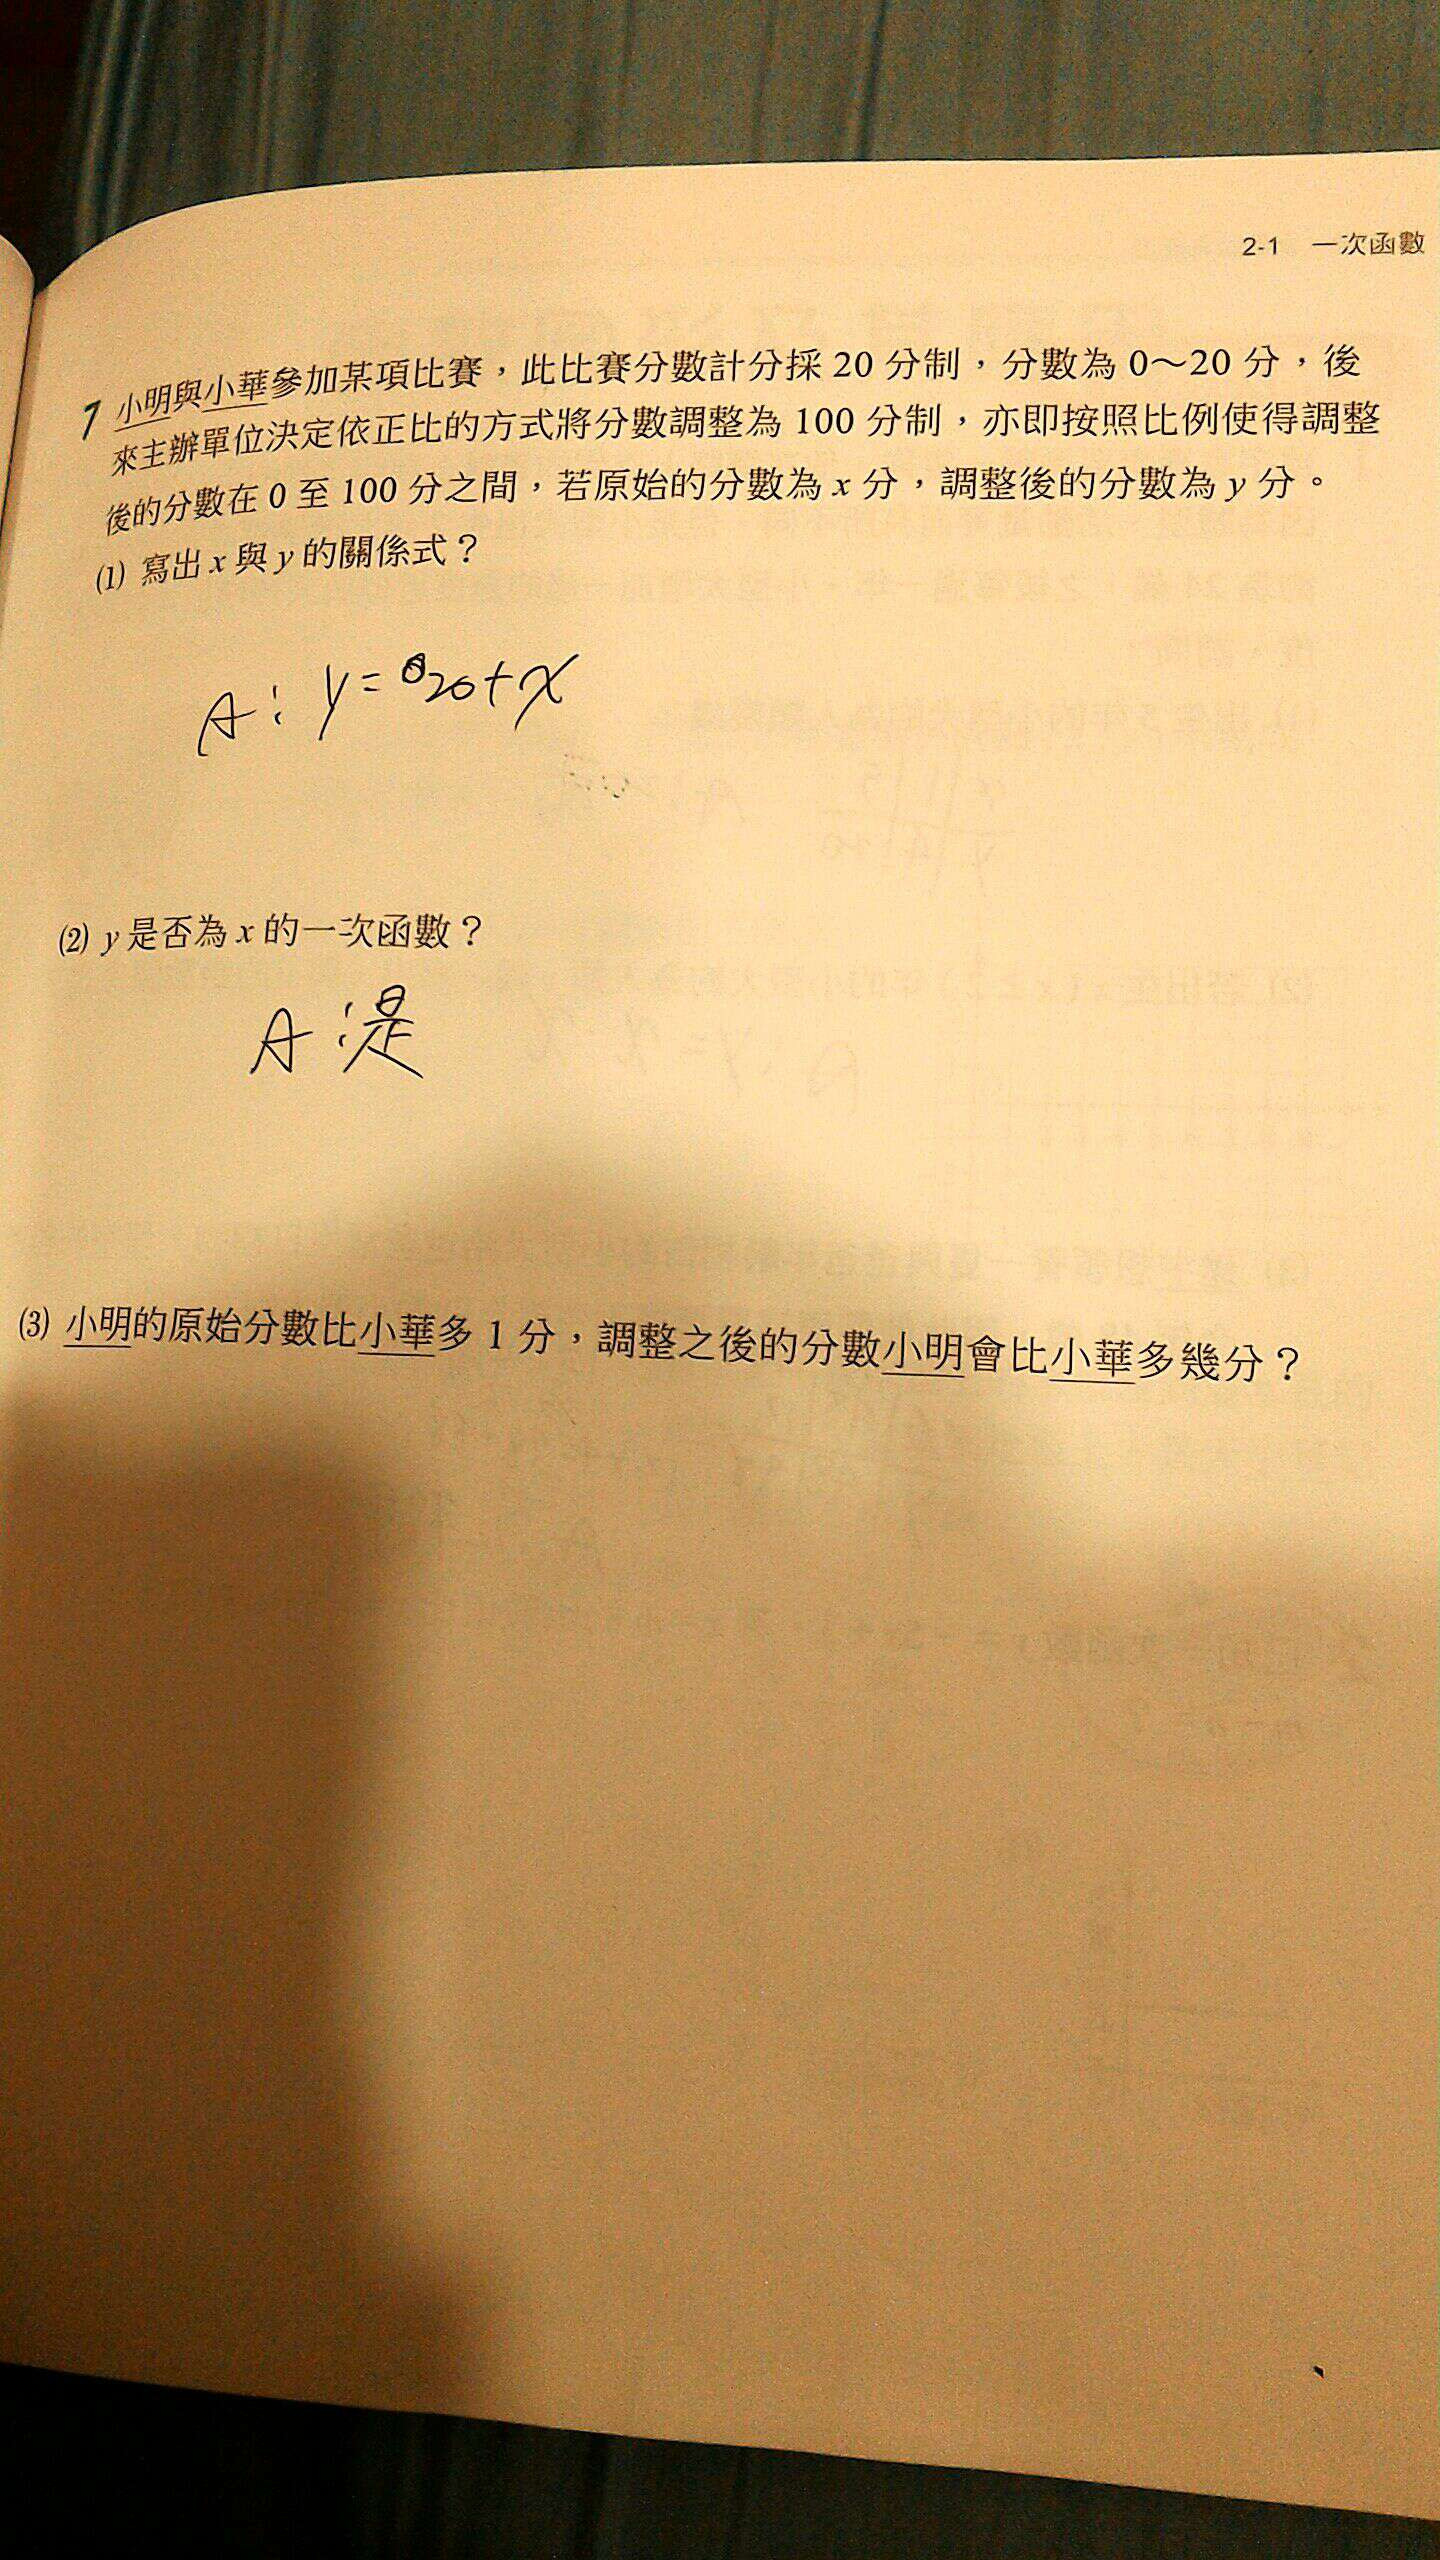 2-1 一次函數
1 小明與小華參加某項比賽，此比賽分數計分採 20 分制，分數為 0～20 分，後
來主辦單位決定依正比的方式將分數調整為 100 分制，亦即按照比例使得調整
後的分數在 0 至 100 分之間，若原始的分數為 x 分，調整後的分數為 y 分。
(1) 寫出 x 與 y 的關係式？
A：y=20+x
(2) y 是否為 x 的一次函數？
A：是
(3) 小明的原始分數比小華多 1 分，調整之後的分數小明會比小華多幾分？